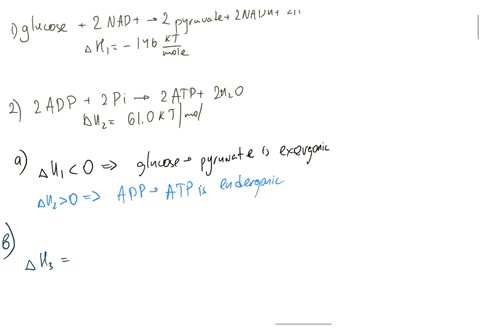 1) glucose + 2 NAD+ → 2 pyruvate + 2NADH + 2H
ΔH₁ = -146 KJ/mole
2) 2 ADP + 2 Pi → 2 ATP + 2H₂O
ΔH₂ = 61.0 KJ/mol
a) ΔH₁ < 0 => glucose → pyruvate is exergonic
ΔH₂ > 0 => ADP → ATP is endergonic
b)
ΔH₃ =